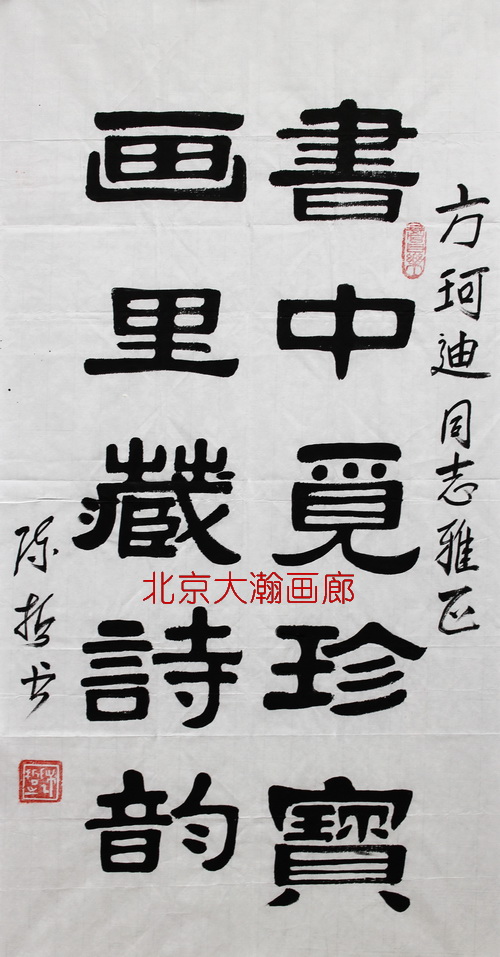 方珂迪同志雅正
書中覓珍寶
画里藏詩韵
陈哲书
北京大瀚画廊